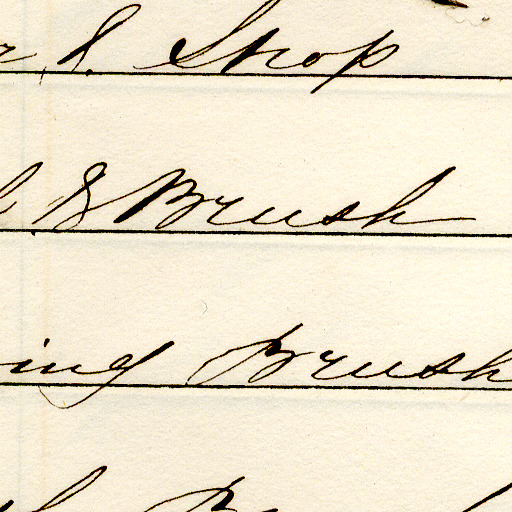 r & Strop
& Brush
ing Brush